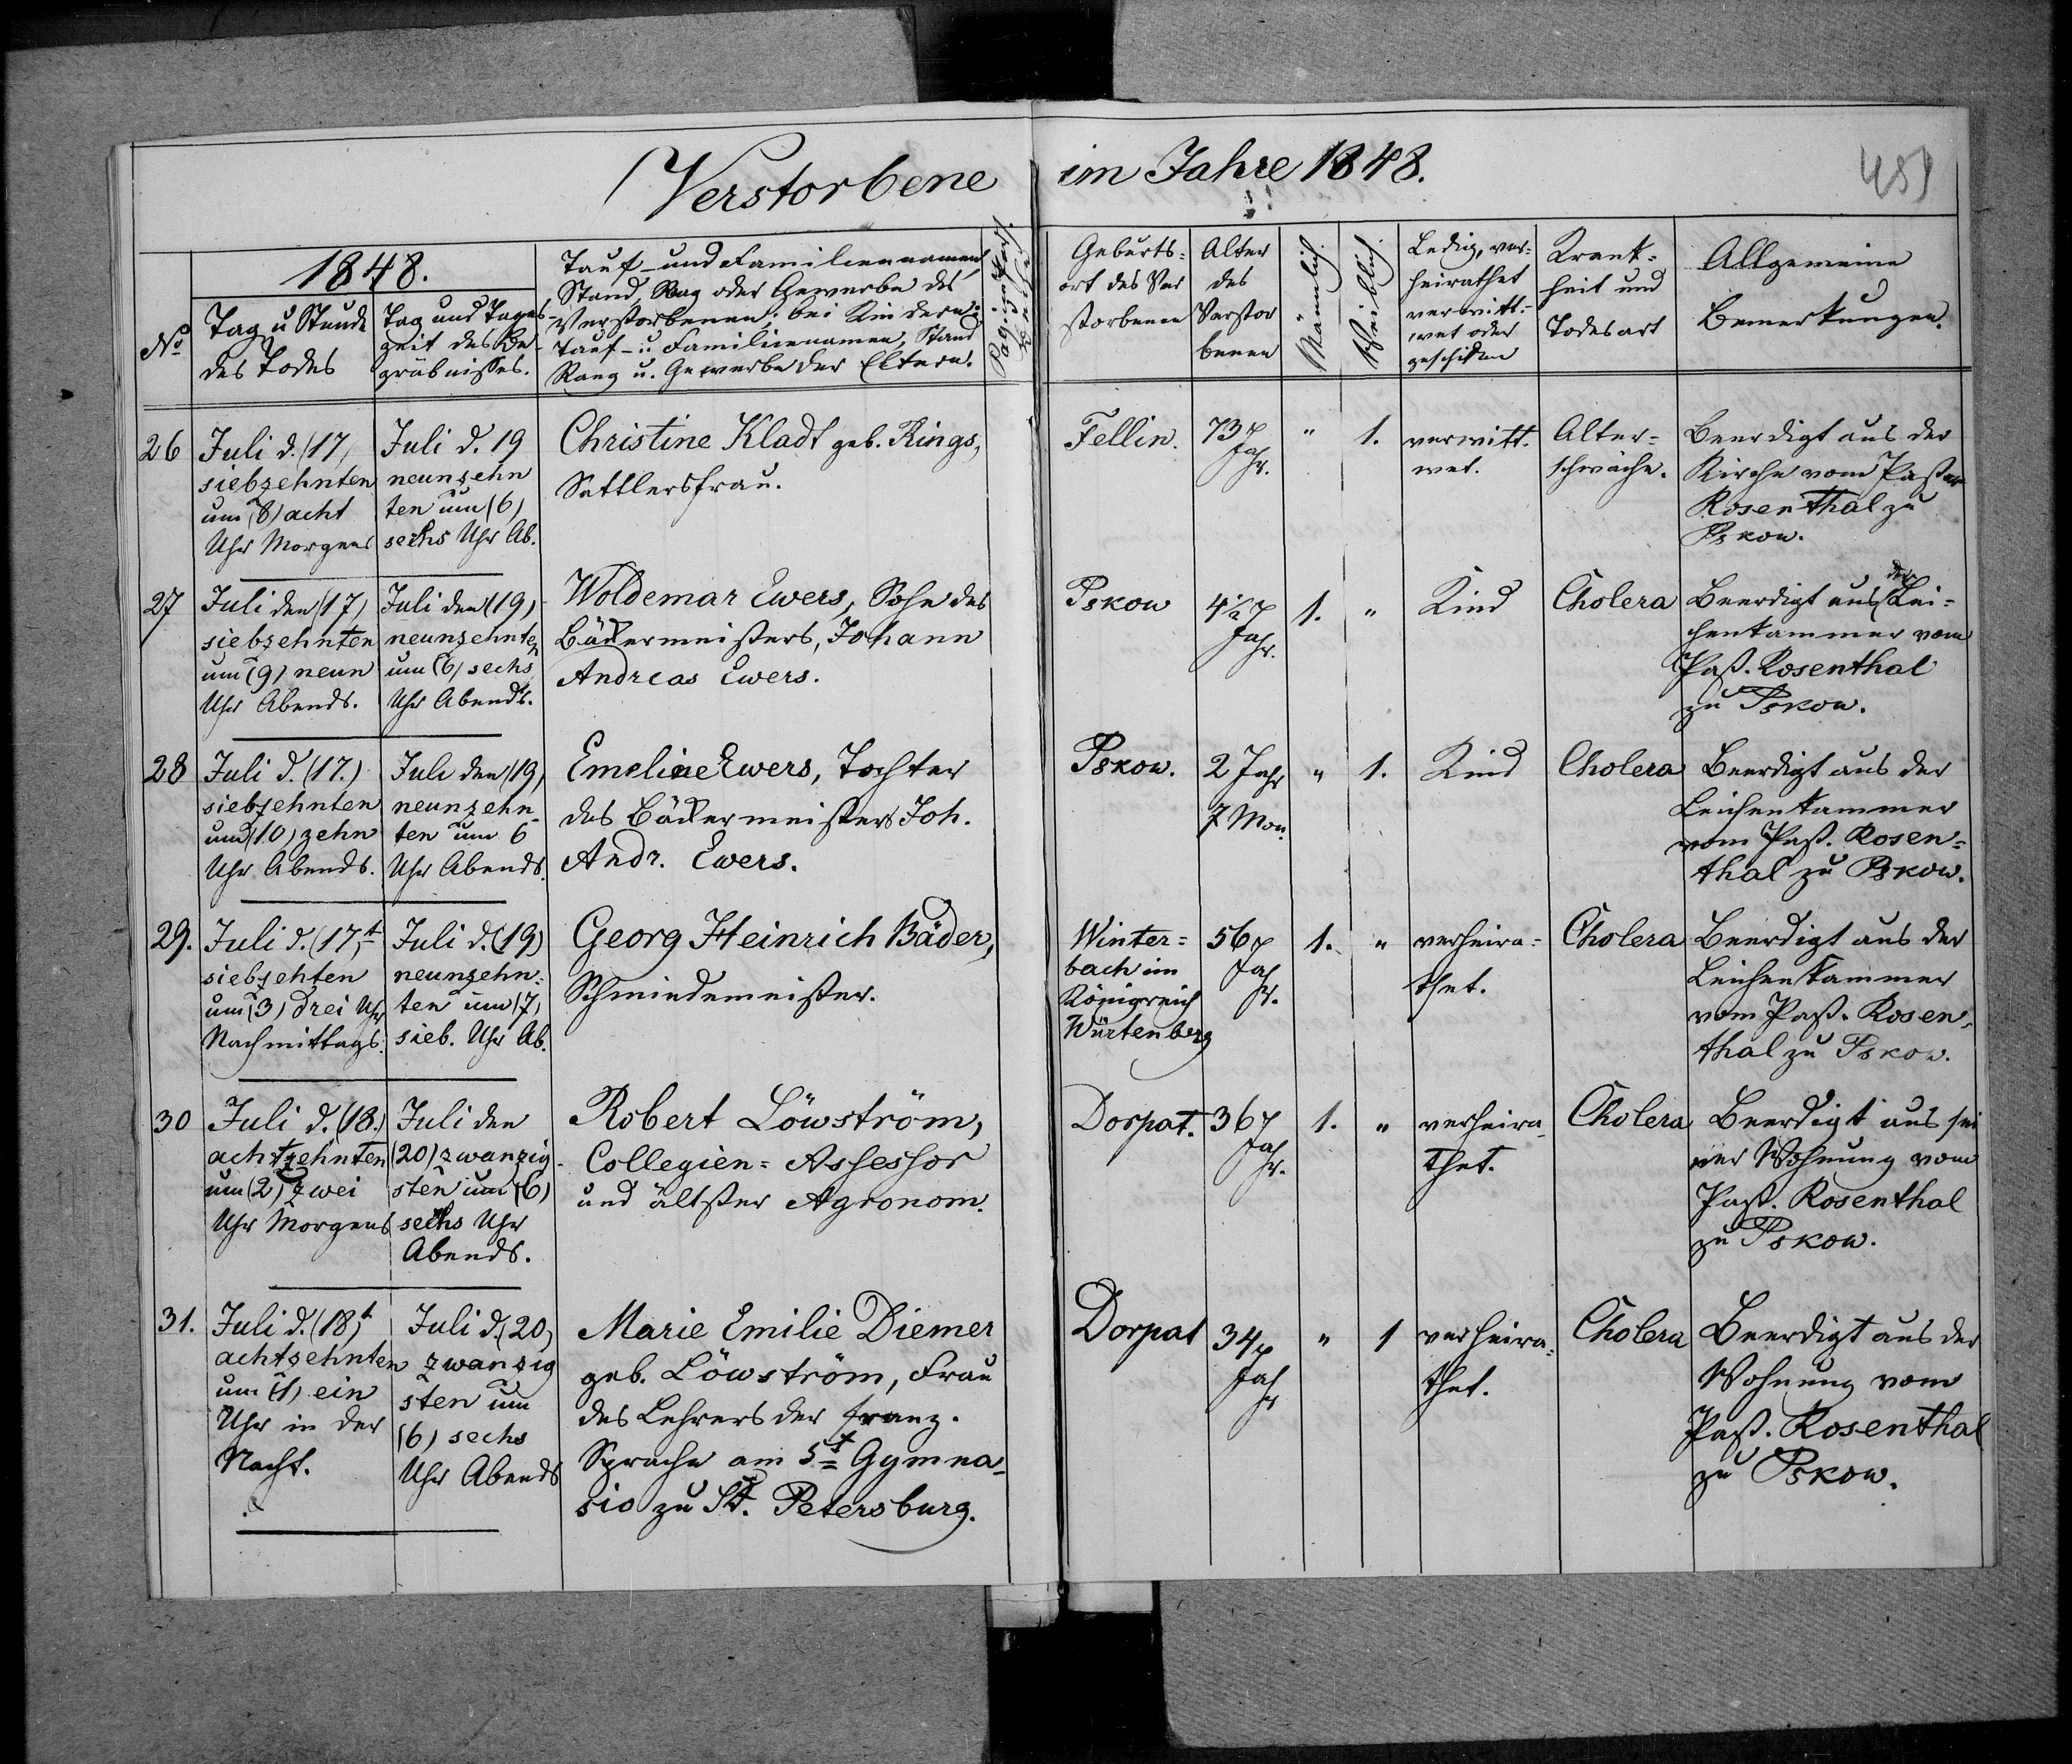 Verstorbene im Jahre 1848.
459
1848.
No
Tag u Stunde
des Todes
Tag und Tages-
zeit des Be-
gräbnisses.
Tauf- und Familiennamen,
Stand, Rang oder Gewerbe des
Verstorbenen; bei Kindern:
Tauf- u. Familiennamen, Stand
Rang u. Gewerbe der Eltern.
Geburts-
ort des Ver
storbenen
Alter
des
Verstor
benen
Männlich
Weiblich
Ledig, ver-
heirathet
verwitt-
wet oder
geschieden
Krank-
heit und
Todesart
Allgemeine
Bemerkungen.
26
Juli d. (17)
siebzehnten
um (8) acht
Uhr Morgens
Juli d. 19
neunzehn
ten um (6)
sechs Uhr Ab.
Christine Kladt geb. Rings,
Sattlersfrau.
Fellin.
73
Jahr.
" 1.
verwitt.
wet.
Alter-
schwäche.
Beerdigt aus der
Kirche vom Pastor
Rosenthal zu
Pskow.
27
Juli den (17)
siebzehnten
um (9) neun
Uhr Abends.
Juli den (19)
neunzehnten
um (6) sechs
Uhr Abends.
Woldemar Ewers, Sohn des
Bäckermeisters, Johann
Andreas Ewers.
Pskow
4½
Jahr.
1. "
Kind
Cholera
Beerdigt aus der Lei-
chenkammer vom
Past. Rosenthal
zu Pskow.
28
Juli d. (17.)
siebzehnten
um (10) zehn
Uhr Abends.
Juli den (19)
neunzehn-
ten um 6
Uhr Abends.
Emeline Ewers, Tochter
des Bäckermeisters Joh.
Andr. Ewers.
Pskow.
2 Jahr
7 Mon.
" 1.
Kind
Cholera
Beerdigt aus der
Leichenkammer
vom Past. Rosen-
thal zu Pskow.
29.
Juli d. (17)t
siebzehten
um (3) drei Uhr
Nachmittags.
Juli d. (19)
neunzehn-
ten um (7)
sieb. Uhr Ab.
Georg Heinrich Bäder,
Schmiedemeister.
Winter-
bach im
Königreich
Würtenberg
56
Jahr.
1. "
verheira-
thet.
Cholera
Beerdigt aus der
Leichenkammer
vom Past. Rosen-
thal zu Pskow.
30
Juli d. (18.)
achtzehnten
um (2) zwei
Uhr Morgens
Juli den
(20) zwanzig-
sten um (6)
sechs Uhr
Abends.
Robert Löwström,
Collegien-Assessor
und ältster Agronom.
Dorpat.
36
Jahr.
1. "
verheira-
thet.
Cholera
Beerdigt aus sei
ner Wohnung vom
Past. Rosenthal
zu Pskow.
31.
Juli d. (18)t
achtzehnten
um (1) ein
Uhr in der
Nacht.
Juli d. (20)
zwanzig
sten um
(6) sechs
Uhr Abends
Marie Emilie Diemer
geb. Löwström, Frau
des Lehrers der franz.
Sprache am 5t Gymna-
sio zu St. Petersburg.
Dorpat
34
Jahr
" 1
verheira-
thet.
Cholera
Beerdigt aus der
Wohnung vom
Past. Rosenthal
zu Pskow.